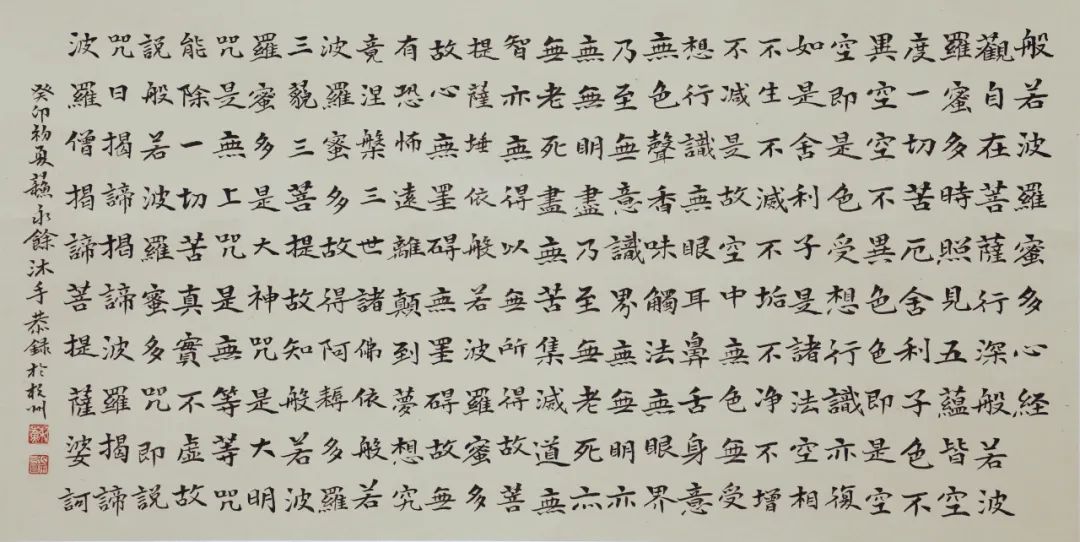 般若波羅蜜多心経
觀自在菩薩行深般若波
羅蜜多時照見五蘊皆空
度一切苦厄舍利子色不
異空空不異色色即是空
空即是色受想行識亦復
如是舍利子是諸法空相
不生不滅不垢不净不增
不減是故空中無色無受
想行識無眼耳鼻舌身意
無色聲香味觸法無眼界
乃至無意識界無無明亦
無無明盡乃至無老死亦
無老死盡無苦集滅道無
智亦無得以無所得故菩
提薩埵依般若波羅蜜多
故心無罣碍無罣碍故無
有恐怖遠離顛到夢想究
竟涅槃三世諸佛依般若
波羅蜜多故得阿耨多羅
三藐三菩提故知般若波
羅蜜多是大神咒是大明
咒是無上咒是無等等咒
能除一切苦真實不虛故
說般若波羅蜜多咒即說
咒曰揭諦揭諦波羅揭諦
波羅僧揭諦菩提薩婆訶
癸卯初夏蘇永餘沐手恭錄於杭州